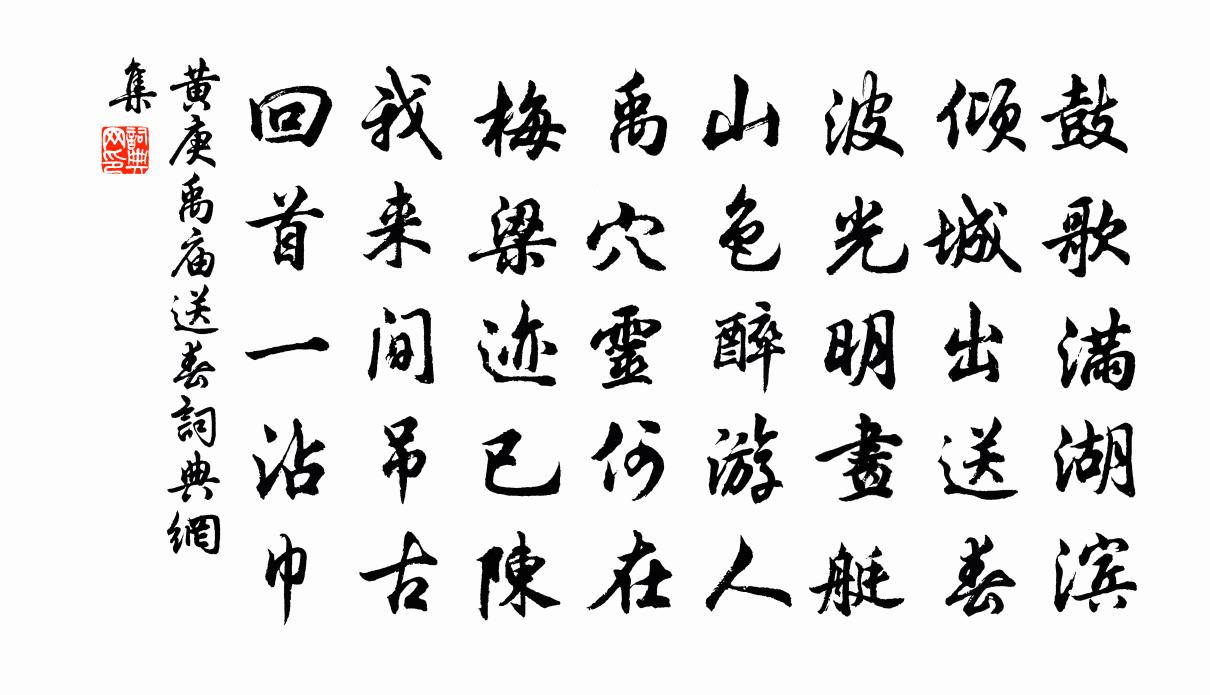 鼓歌满湖滨
倾城出送春
波光明畫艇
山色醉游人
禹穴靈何在
梅梁迹已陳
我来间吊古
回首一沾巾
黄庚禹庙送春詞典網
集
詞典网印